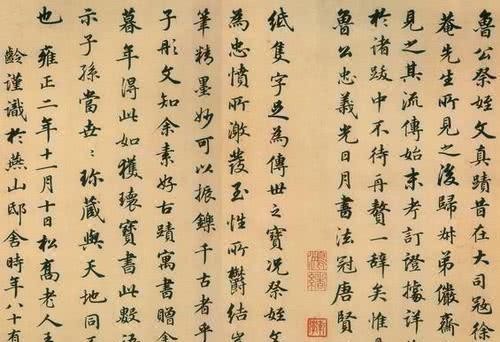 魯公祭姪文真蹟昔在大司冦徐
菴先生所見之後歸妹弟儼齋
見之其流傳始末考訂證據詳
於諸跋中不待再贅一辭矣惟
魯公忠義光日月書法冠唐賢
紙隻字足為傳世之寶況祭姪文
為忠憤所激發至性所鬱結
筆精墨妙可以振鑠千古者乎
子彤文知余素好古蹟寓書贈
暮年得此如獲瓌寶書此數語
示子孫當世：珎藏與天地同
也 雍正二年十一月十日松喬老人王
齡謹識於燕山邸舍時年八十有